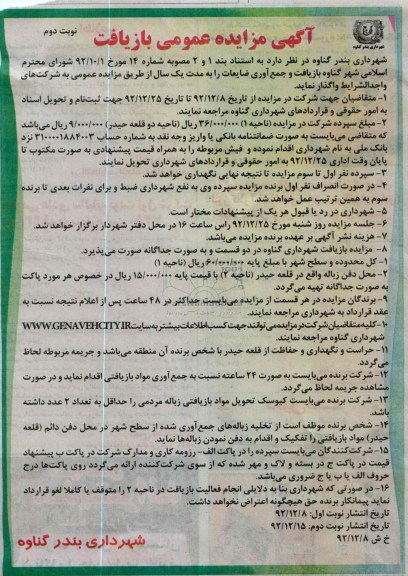 نوبت دوم
آگهی مزایده عمومی بازیافت
شهرداری بندر گناوه
شهرداری بندر گناوه در نظر دارد به استناد بند ۱ و ۲ مصوبه شماره ۱۴ مورخ ۹۲/۱۰/۱ شورای محترم
اسلامی شهر گناوه بازیافت و جمع آوری ضایعات را به مدت یک سال از طریق مزایده عمومی به شرکت‌های
واجدالشرایط واگذار نماید.
۱- متقاضیان جهت شرکت در مزایده از تاریخ ۹۲/۱۲/۸ تا تاریخ ۹۲/۱۲/۲۵ جهت ثبت‌نام و تحویل اسناد
به امور حقوقی و قراردادهای شهرداری گناوه مراجعه نمایند.
۲- مبلغ سپرده شرکت در مزایده (ناحیه ۱) ۳۶/۰۰۰/۰۰۰ ریال (ناحیه دو قلعه حیدر) ۹/۰۰۰/۰۰۰ ریال می‌باشد
که متقاضی می‌بایست به صورت ضمانتنامه بانکی یا واریز وجه نقد به شماره حساب ۳۱۰۰۰۰۱۸۸۴۰۰۳ نزد
بانک ملی به نام شهرداری اقدام نموده و فیش مربوطه را به همراه قیمت پیشنهادی به صورت مکتوب تا
پایان وقت اداری ۹۲/۱۲/۲۵ به امور حقوقی و قراردادهای شهرداری تحویل نمایند.
۳- سپرده نفر اول تا سوم مزایده تا نتیجه نهایی نگهداری خواهد شد.
۴- در صورت انصراف نفر اول برنده مزایده سپرده وی به نفع شهرداری ضبط و برای نفرات بعدی تا برنده
سوم به همین ترتیب عمل خواهد شد.
۵- شهرداری در رد یا قبول هر یک از پیشنهادات مختار است.
۶- جلسه مزایده روز شنبه مورخ ۹۲/۱۲/۲۵ راس ساعت ۱۶ در محل دفتر شهردار برگزار خواهد شد.
۷- هزینه نشر آگهی بر عهده برنده مزایده می‌باشد.
۸- مزایده بازیافت شهرداری گناوه در دو قسمت و به صورت جداگانه صورت می‌پذیرد.
۱- کل محدوده و سطح شهر با مبلغ پایه ۶۰/۰۰۰/۰۰۰ ریال (ناحیه ۱)
۲- محل دفن زباله واقع در قلعه حیدر (ناحیه ۲) با قیمت پایه ۱۵/۰۰۰/۰۰۰ ریال در خصوص هر مورد پاکت
به صورت جداگانه تهیه می‌گردد.
۹- برندگان مزایده در هر قسمت از مزایده می‌بایست حداکثر در ۴۸ ساعت پس از اعلام نتیجه نسبت به
عقد قرارداد به شهرداری مراجعه نمایند.
۱۰- کلیه متقاضیان شرکت در مزایده می‌توانند جهت کسب اطلاعات بیشتر به سایت WWW.GENAVEHCITY.IR
شهرداری گناوه مراجعه نمایند.
۱۱- حراست و نگهداری و حفاظت از قلعه حیدر با شخص برنده آن منطقه می‌باشد و جریمه مربوطه لحاظ
می‌گردد.
۱۲- شرکت برنده می‌بایست به صورت ۲۴ ساعته نسبت به جمع آوری مواد بازیافتی اقدام نماید و در صورت
مشاهده جریمه لحاظ می‌گردد.
۱۳- شرکت برنده می‌بایست کیوسک تحویل مواد بازیافتی زباله مردمی را حداقل به تعداد ۲ عدد داشته
باشد.
۱۴- شخص برنده موظف است از تخلیه زباله‌های جمع‌آوری شده از سطح شهر در محل دفن دائم (قلعه
حیدر) مواد بازیافتی را تفکیک و اقدام به دفن نمودن زباله‌ها نماید.
۱۵- شرکت‌کنندگان می‌بایست سپرده را در پاکت الف- رزومه کاری و مدارک شرکت در پاکت ب پیشنهاد
قیمت در پاکت ج در بسته و لاک و مهر شده که از سوی شرکت‌کننده ارائه می‌گردد روی پاکت‌ها درج
حروف الف یا ب یا ج ضروری می‌باشد.
۱۶- در صورتی که شهرداری بنا به دلایلی انجام فعالیت بازیافت در ناحیه ۲ را متوقف یا کاملا لغو قرارداد
نماید پیمانکار برنده حق هیچگونه اعتراض نخواهد داشت.
تاریخ انتشار نوبت اول: ۹۲/۱۲/۸
تاریخ انتشار نوبت دوم: ۹۲/۱۲/۱۵
خ ش ۹۲/۱۲/۸
شهرداری بندر گناوه